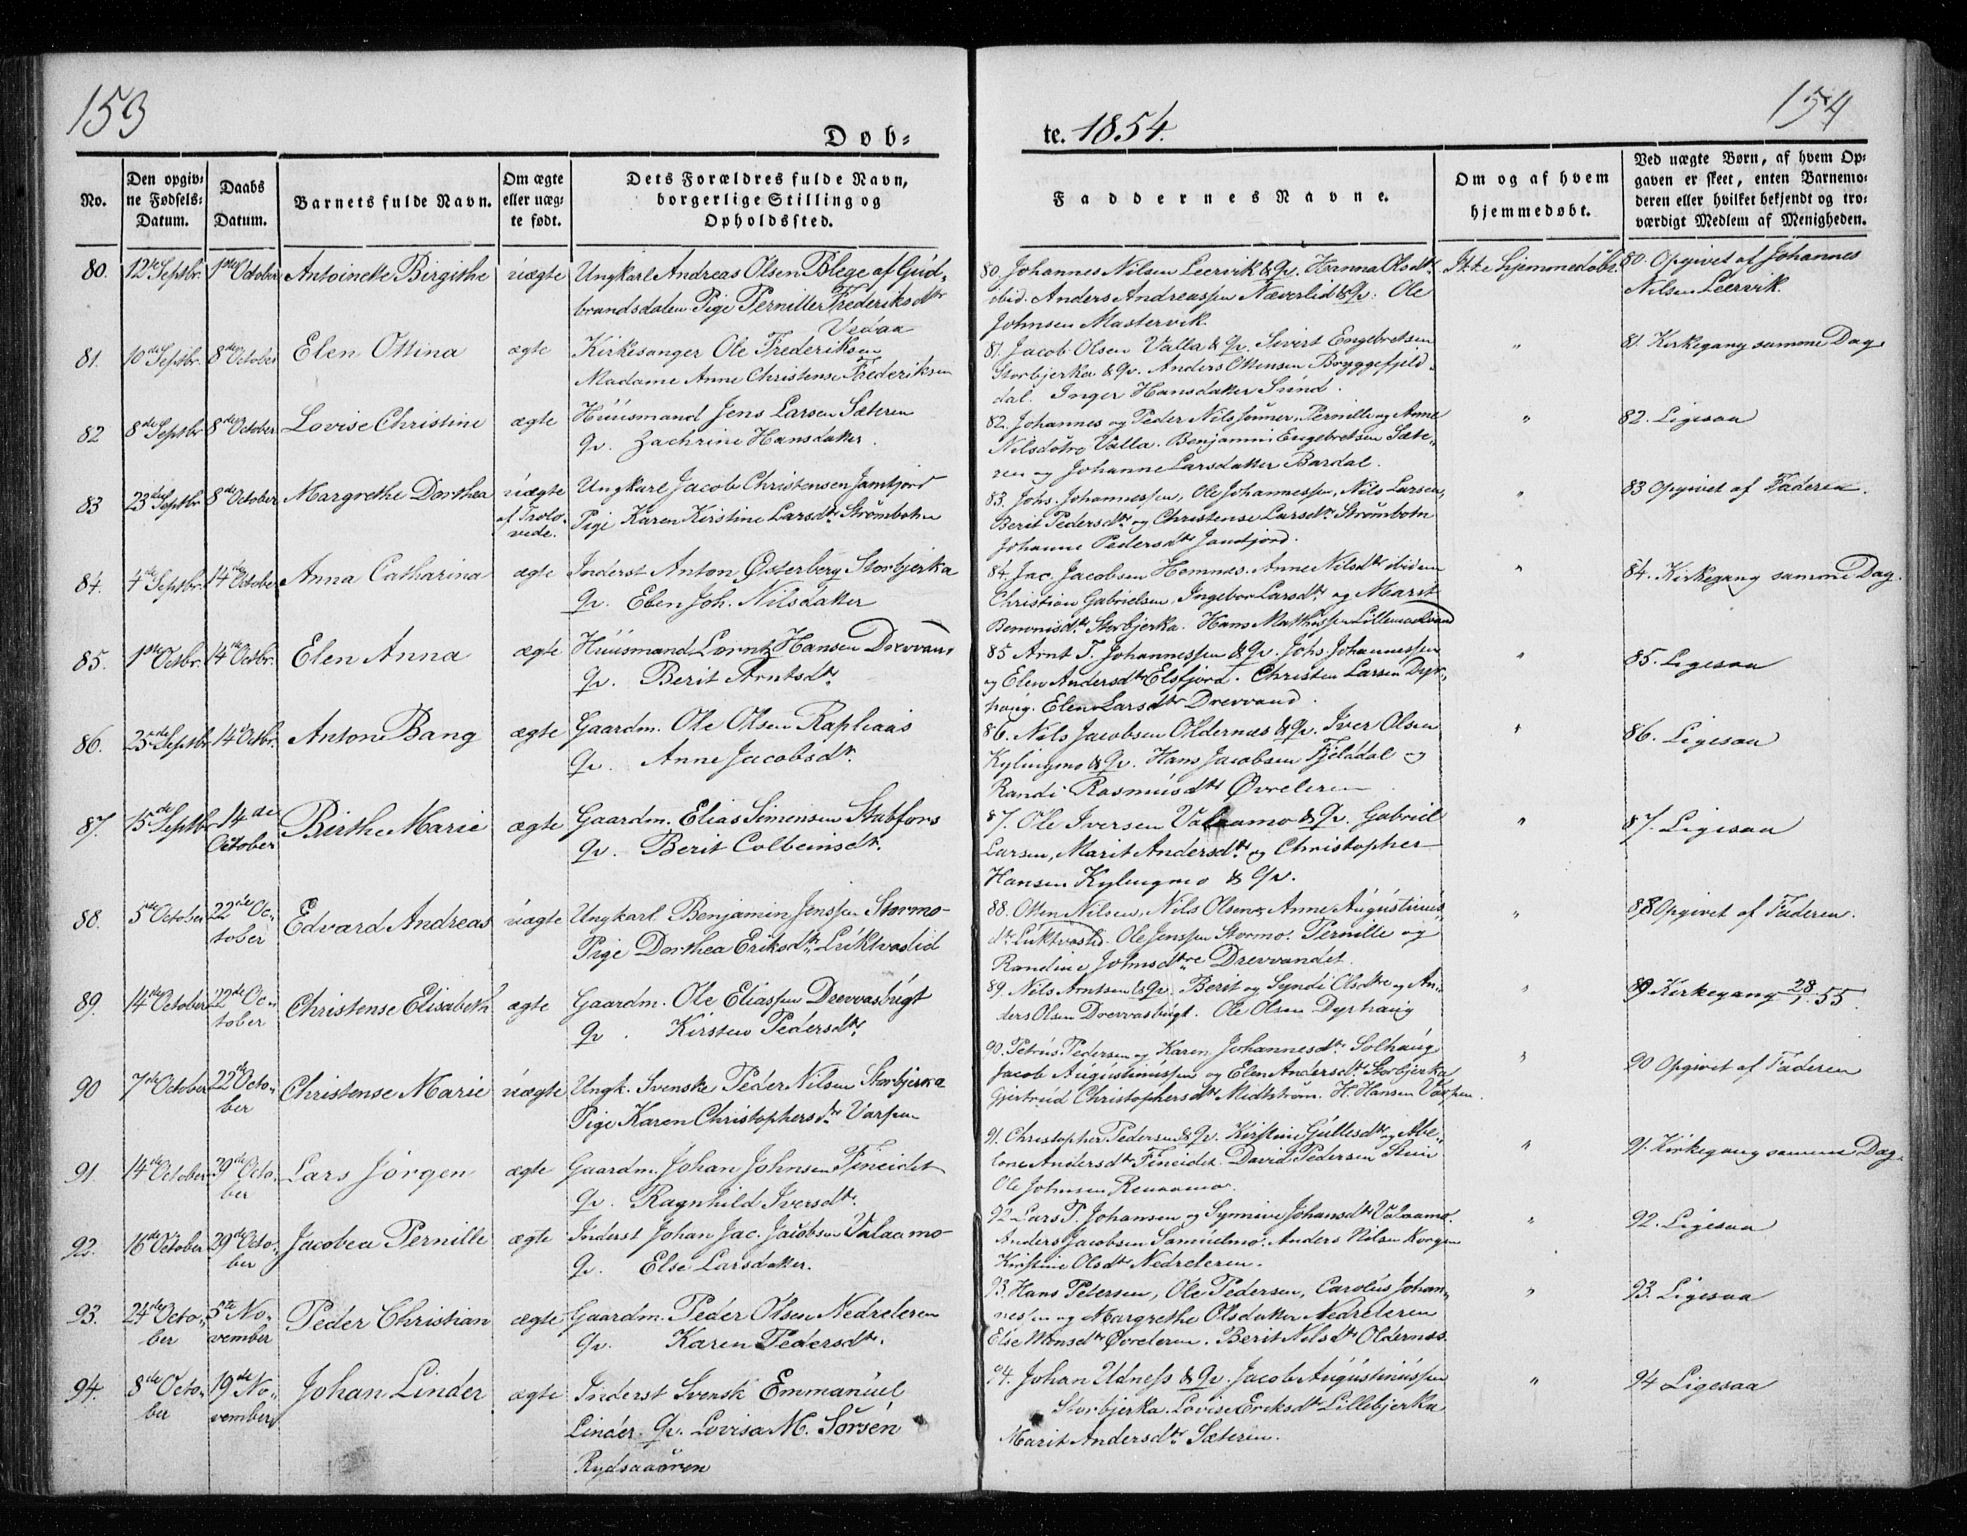 153
154
Døb-
te. 1854.
No.
Den opgiv-
ne Fødsels-
Datum.
Daabs
Datum.
Barnets fulde Navn.
Om ægte
eller uæg-
te født.
Dets Forældres fulde Navn,
borgerlige Stilling og
Opholdssted.
Faddernes Navne.
Om og af hvem
hjemmedøbt.
Ved uægte Børn, af hvem Op-
gaven er skeet, enten Barnemo-
deren eller hvilket bekjendt og tro-
værdigt Medlem af Menigheden.
80. 12te Septbr. 1ste October Antoinette Birgithe uægte Ungkarl Andreas Olsen Blege af Gud-
brandsdalen Pige Pernille Frederiksdtr
Vedaa
80. Johannes Nilsen Leervik & Qv. Hanna Olsdtr
ibid. Anders Andreassen Næverlid & Qv. Ole
Johnsen Mastervik.
Ikke hjemmedøbt.
80. Opgivet af Johannes
Nilsen Leervik.
81. 10de Septbr. 8de October Elen Ottina ægte Kirkesanger Ole Frederiksen
Madame Anne Christense Frederiksen
81. Jacob Olsen Valla & Qv. Sivert Engebretsen
Storbjerka & Qv. Anders Ottensen Bryggefjeld-
dal. Inger Hansdatter Sund.
"
81. Kirkegang samme Dag.
82 8de Septbr 8de October Lovise Christine ægte Huusmand Jens Larsen Sæteren
Qv. Zachrine Hansdatter.
82. Johannes og Peder Nilssønner, Pernille og Anne
Nilsdøtre Valla. Benjamin Engebretsen Sæte-
ren og Johanne Larsdatter Bardal.
"
82. Ligesaa
83 23de Septbr 8de October Margrethe Dorthea uægte
af Trolo-
vede.
Ungkarl Jacob Christensen Jamtjord
Pige Karen Kirstine Larsdtr Strømbotn
83. Johs. Johannessen, Ole Johannessen, Nils Larsen,
Berit Pedersdtr og Christense Larsdtr Strømbotn
Johanne Pedersdtr Jamtjord.
"
83 Opgivet af Faderen.
84. 4de Septbr. 14de October Anna Catharina ægte Inderst Anton Østerberg Storbjerka
Qv. Elen Joh. Nilsdatter
84. Jac. Jacobsen Hemnes. Anne Nilsdtr ibidem
Christian Gabrielsen, Ingebor Larsdtr og Marit
Benonisdtr Storbjerka. Hans Mathissen
"
84. Kirkegang samme Dag.
85. 1ste Octbr. 14de Octbr. Elen Anna ægte Huusmand Lorntz Hansen Drevvand
Qv. Berit Arntsdtr
85 Arnt T. Johannessen & Qv. Johs. Johannessen
og Elen Andersdtr Elsfjord. Christen Larsen Dyr-
haug. Elen Larsdtr Drevvand.
"
85. Ligesaa
86. 23de Septbr 14de Octbr. Antone Bang ægte Gaardm. Ole Olsen Rapliaas
Qv. Anne Jacobsdtr.
86. Nils Jacobsen Oldernæs & Qv. Iver Olsen
Kylingmo & Qv. Hans Jacobsen Fjeldal og
Randi Rasmusdtr Øvreleren
"
86. Ligesaa
87. 15de Septbr 14de
October Birthe Marie ægte Gaardm. Elias Simonsen Stabfors
Qv. Berit Colbeinsdtr.
87. Ole Iversen Valaamo & Qv. Gabriel
Larsen, Marit Andersdtr og Christopher
Hansen Kylingmo & Qv.
"
87. Ligesaa
88. 5de October 22de Oc-
tober Edvard Andreas uægte Ungkarl Benjamin Jenssen Stormo
Pige Dorthea Eriksdtr Luktvaslid
88. Otten Nilsen, Nils Olsen, Anne Augustinus-
dtr Luktvaslid. Ole Jenssen Stormo. Pernille og
Randine Johnsdtre Drevvandet.
"
88 Opgivet af Faderen.
89. 14de October 22de Oc-
tober Christense Elisabeth ægte Gaardm. Ole Eliassen Drevvasbugt
Qv. Kirsten Pedersdtr.
89. Nils Arntsen & Qv. Berit og Syndi Olsdtre og An-
ders Olsen Drevvasbugt. Ole Olsen Dyrhaug
"
89 Kirkegang 28/1 55.
90 7de October 22de Octo-
ber Christense Marie uægte Ungk. Svenske Peder Nilsen Storbjerka
Pige Karen Christophersdtr Varpen
90. Petrus Pedersen og Karen Johannesdtr Solhaug
Jacob Augustinussen og Elen Andersdtr Storbjerka
Gjertruid Christophersdtr Midtstrøm. H. Hansen Varpen.
"
90 Opgivet af Faderen
91. 14de October 29de Octo-
ber Lars Jørgen ægte Gaardm. Johan Johnsen Fineidet
Qv. Ragnhild Iversdtr.
91. Christopher Pedersen & Qv. Kirstine Gullesdtr og Abe-
lone Andersdtr Fineidet. David Pedersen Steen
Ole Johnsen
"
91. Kirkegang samme Dag.
92. 16de October 29de Octo-
ber Jacobea Pernille ægte Inderst Johan Jac. Jacobsen Valaamo
Qv. Else Larsdatter.
92 Lars P. Johansen og Synnive Johansdtr Valaamo.
Anders Jacobsen Samuelmo. Anders Nilsen Korgen
Kirstine Olsdtr Nedreleren.
"
92. Ligesaa
93. 24de Octo-
ber 5te No-
vember Peder Christian ægte Gaardm. Peder Olsen Nedreleren
Qv. Karen Pedersdtr.
93. Hans Petersen, Ole Pedersen, Carolus Johan-
nesen og Margrethe Olsdatter Nedreleren
Else Monsdtr Øvreleren. Berit Nilsdtr Oldernæs.
"
93. Ligesaa
94. 8de Octo-
ber 19de No-
vember Johan Linder ægte Inderst Svensk Emmanuel
Linder Qv. Lovisa M. Sörsén
Rydsaaøren
94. Johan Udness & Qv. Jacob Augustinussen
Storbjerka. Lovise Eriksdtr Lillebjerka
Marit Andersdtr Sæteren.
"
94 Ligesaa